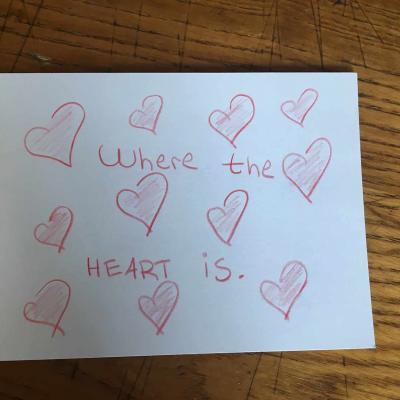 Where the
HEART is.